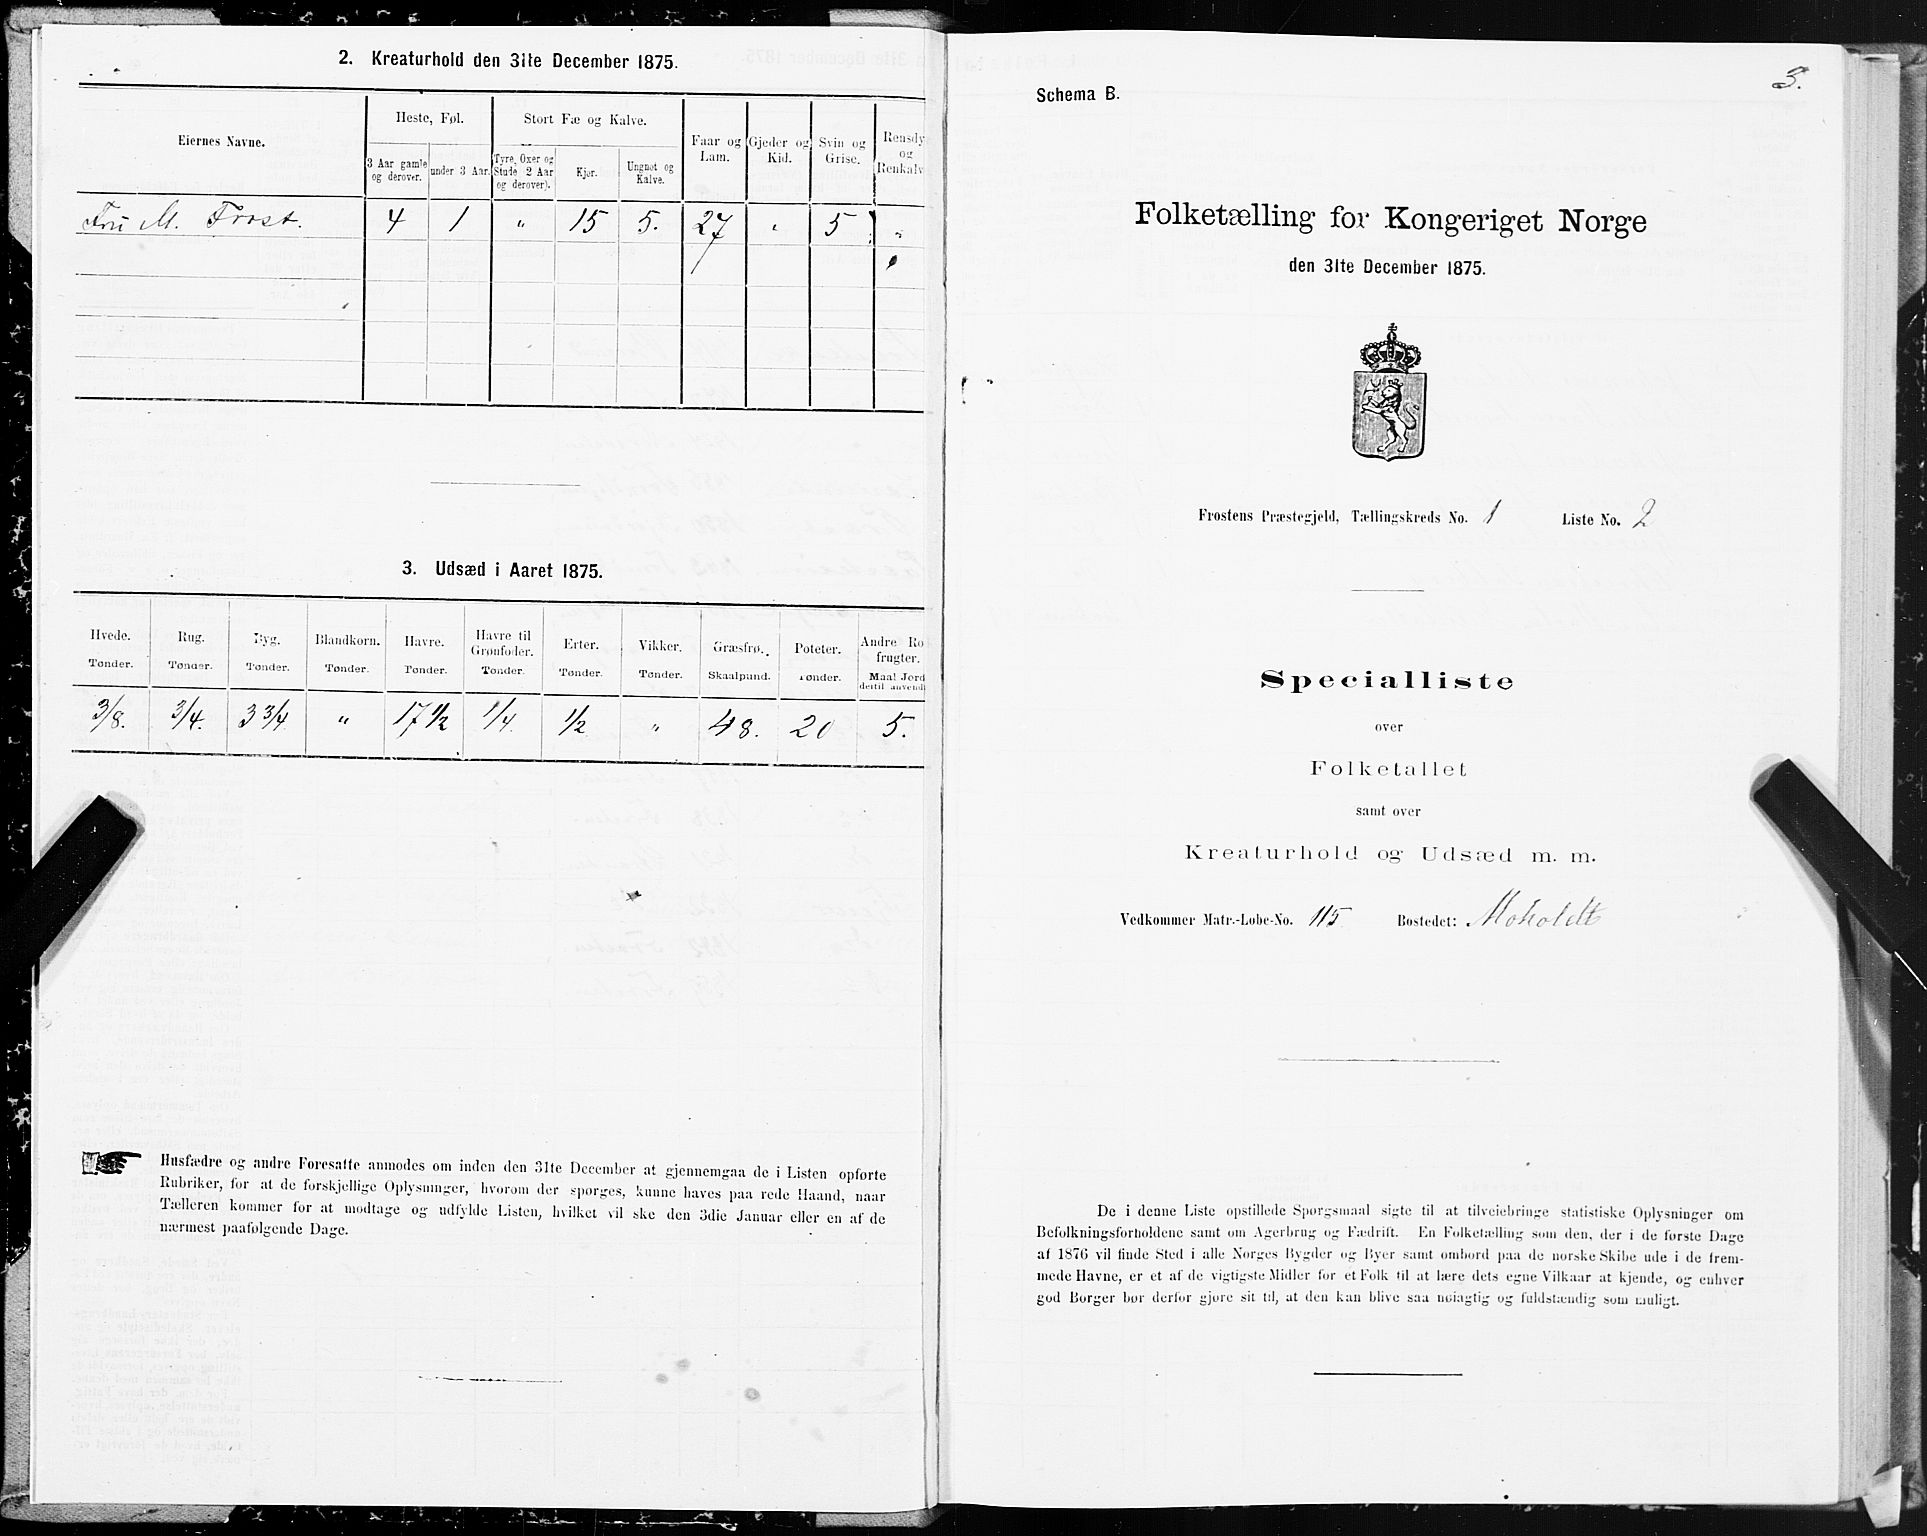 2. Kreaturhold den 31te December 1875.
Eiernes Navne.
Heste, Føl.
Stort Fæ og Kalve.
3 Aar gamle og derover.
under 3 Aar.
Tyre, Oxer og Stude 2 Aar og derover).
Kjør.
Ungnøt og Kalve.
Faar og Lam.
Gjeder og Kid.
Svin og Grise.
Rensdy og Renkalv
Fru M. Frost. 4 1 " 15 5. 27 " 5 "
3. Udsæd i Aaret 1875.
Hvede. Rug. Byg. Blandkorn. Havre. Havre til Grønfoder. Erter. Vikker. Græsfrø. Poteter. Andre Ro frugter.
Tønder. Tønder. Tønder. Tønder. Tønder. Tønder. Tønder. Tønder. Skaalpund. Tønder. Maal Jord dertil anvendt
3/8. 3/4. 3 3/4 " 17 1/2 1/4. 1/2 " 48. 20 5.
Husfædre og andre Foresatte anmodes om inden den 31te December at gjennemgaa de i Listen opførte
Rubriker, for at de forskjellige Oplysninger, hvorom der spørges, kunne haves paa rede Haand, naar
Tælleren kommer for at modtage og udfylde Listen, hvilket vil ske den 3die Januar eller en af de
nærmest paafølgende Dage.
3.
Schema B.
Folketælling for Kongeriget Norge
den 31te December 1875.
Frostens Præstegjeld, Tællingskreds No. 1 Liste No. 2
Specialliste
over
Folketallet
samt over
Kreaturhold og Udsæd m. m.
Vedkommer Matr.-Løbe-No. 115 Bostedet: Moholdt
De i denne Liste opstillede Spørgsmaal sigte til at tilveiebringe statistiske Oplysninger om
Befolkningsforholdene samt om Agerbrug og Fædrift. En Folketælling som den, der i de første Dage
af 1876 vil finde Sted i alle Norges Bygder og Byer samt ombord paa de norske Skibe ude i de frem-
mede Havne, er et af de vigtigste Midler for et Folk til at lære dets egne Vilkaar at kjende, og enhver
god Borger bør derfor gjøre sit til, at den kan blive saa nøiagtig og fuldstændig som muligt.